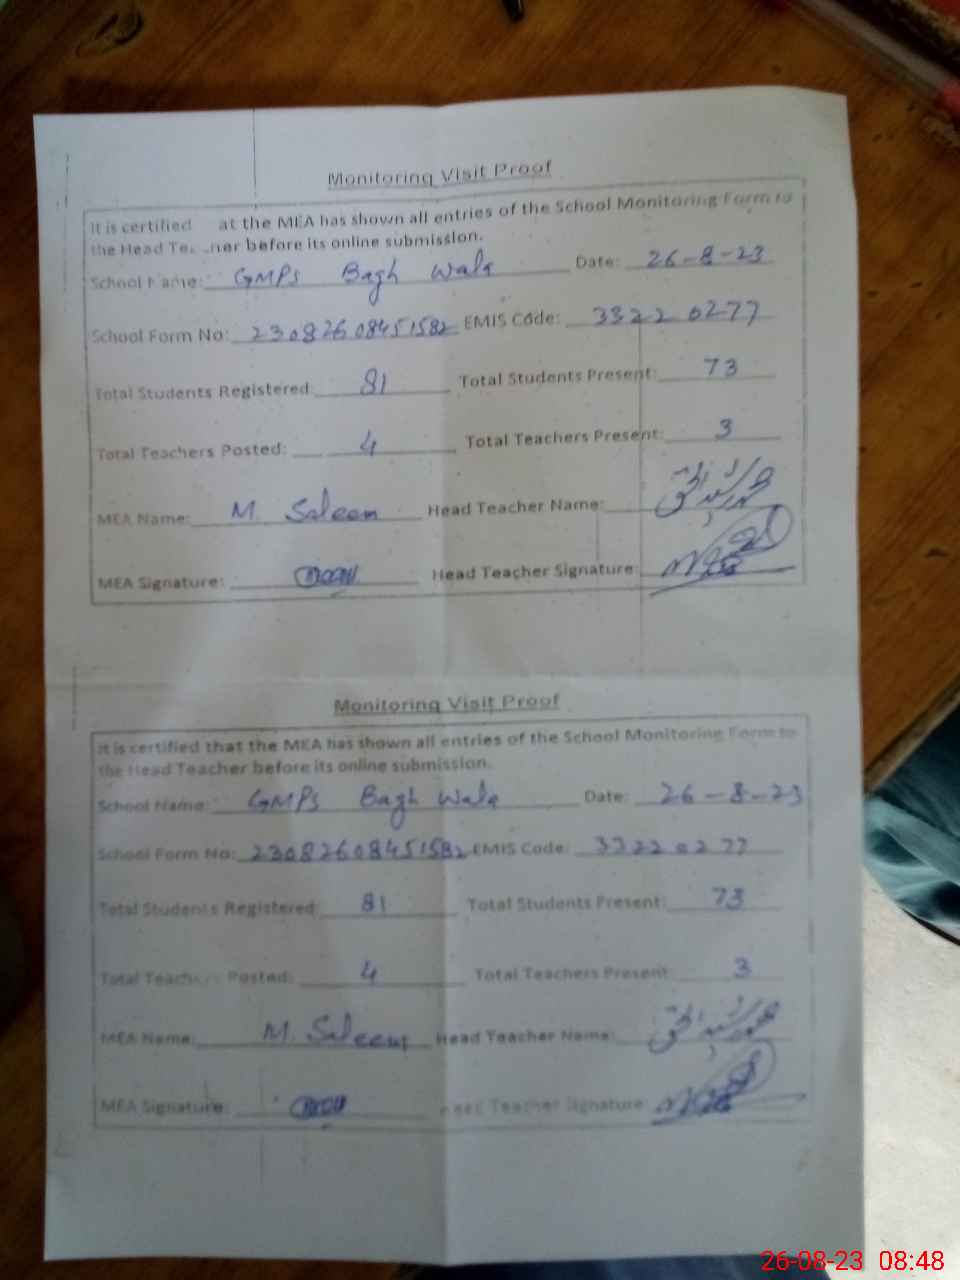 Monitoring Visit Proof
It is certified at the MEA has shown all entries of the School Monitoring Form to
the Head Te. .ner before its online submission.
School Name: GMPS Bagh Wala Date: 26-8-23
School Form No: 23082608451582 EMIS Code: 33220277
Total Students Registered: 81 Total Students Present: 73
Total Teachers Posted: 4 Total Teachers Present: 3
MEA Name: M. Saleem Head Teacher Name:
MEA Signature: Head Teacher Signature:
Monitoring Visit Proof
It is certified that the MEA has shown all entries of the School Monitoring Form to
the Head Teacher before its online submission.
School Name: GMPS Bagh Wala Date: 26-8-23
School Form No: 23082608451582 EMIS Code: 33220277
Total Students Registered: 81 Total Students Present: 73
Total Teachers Posted: 4 Total Teachers Present: 3
MEA Name: M. Saleem Head Teacher Name:
MEA Signature: Head Teacher Signature:
26-08-23 08:48